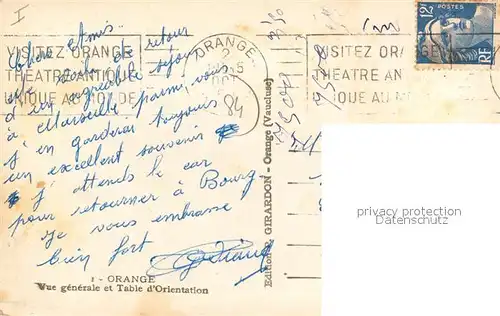 I
Chers Amis.
me voila de retour
d'un agréable séjour
à Marseille parmi vous
j'en garderai toujours
un excellent souvenir
j'attends le car
pour retourner à Bourg
Je vous embrasse
bien fort
VISITEZ ORANGE
THEATRE ANTIQUE
UNIQUE AU MONDE
ORANGE
84
VISITEZ ORA
THEATRE AN
IQUE AU M
POSTES
12F
RF
1 - ORANGE
Vue générale et Table d'Orientation
GIRARDON - Orange (Vaucluse)
privacy protection
Datenschutz